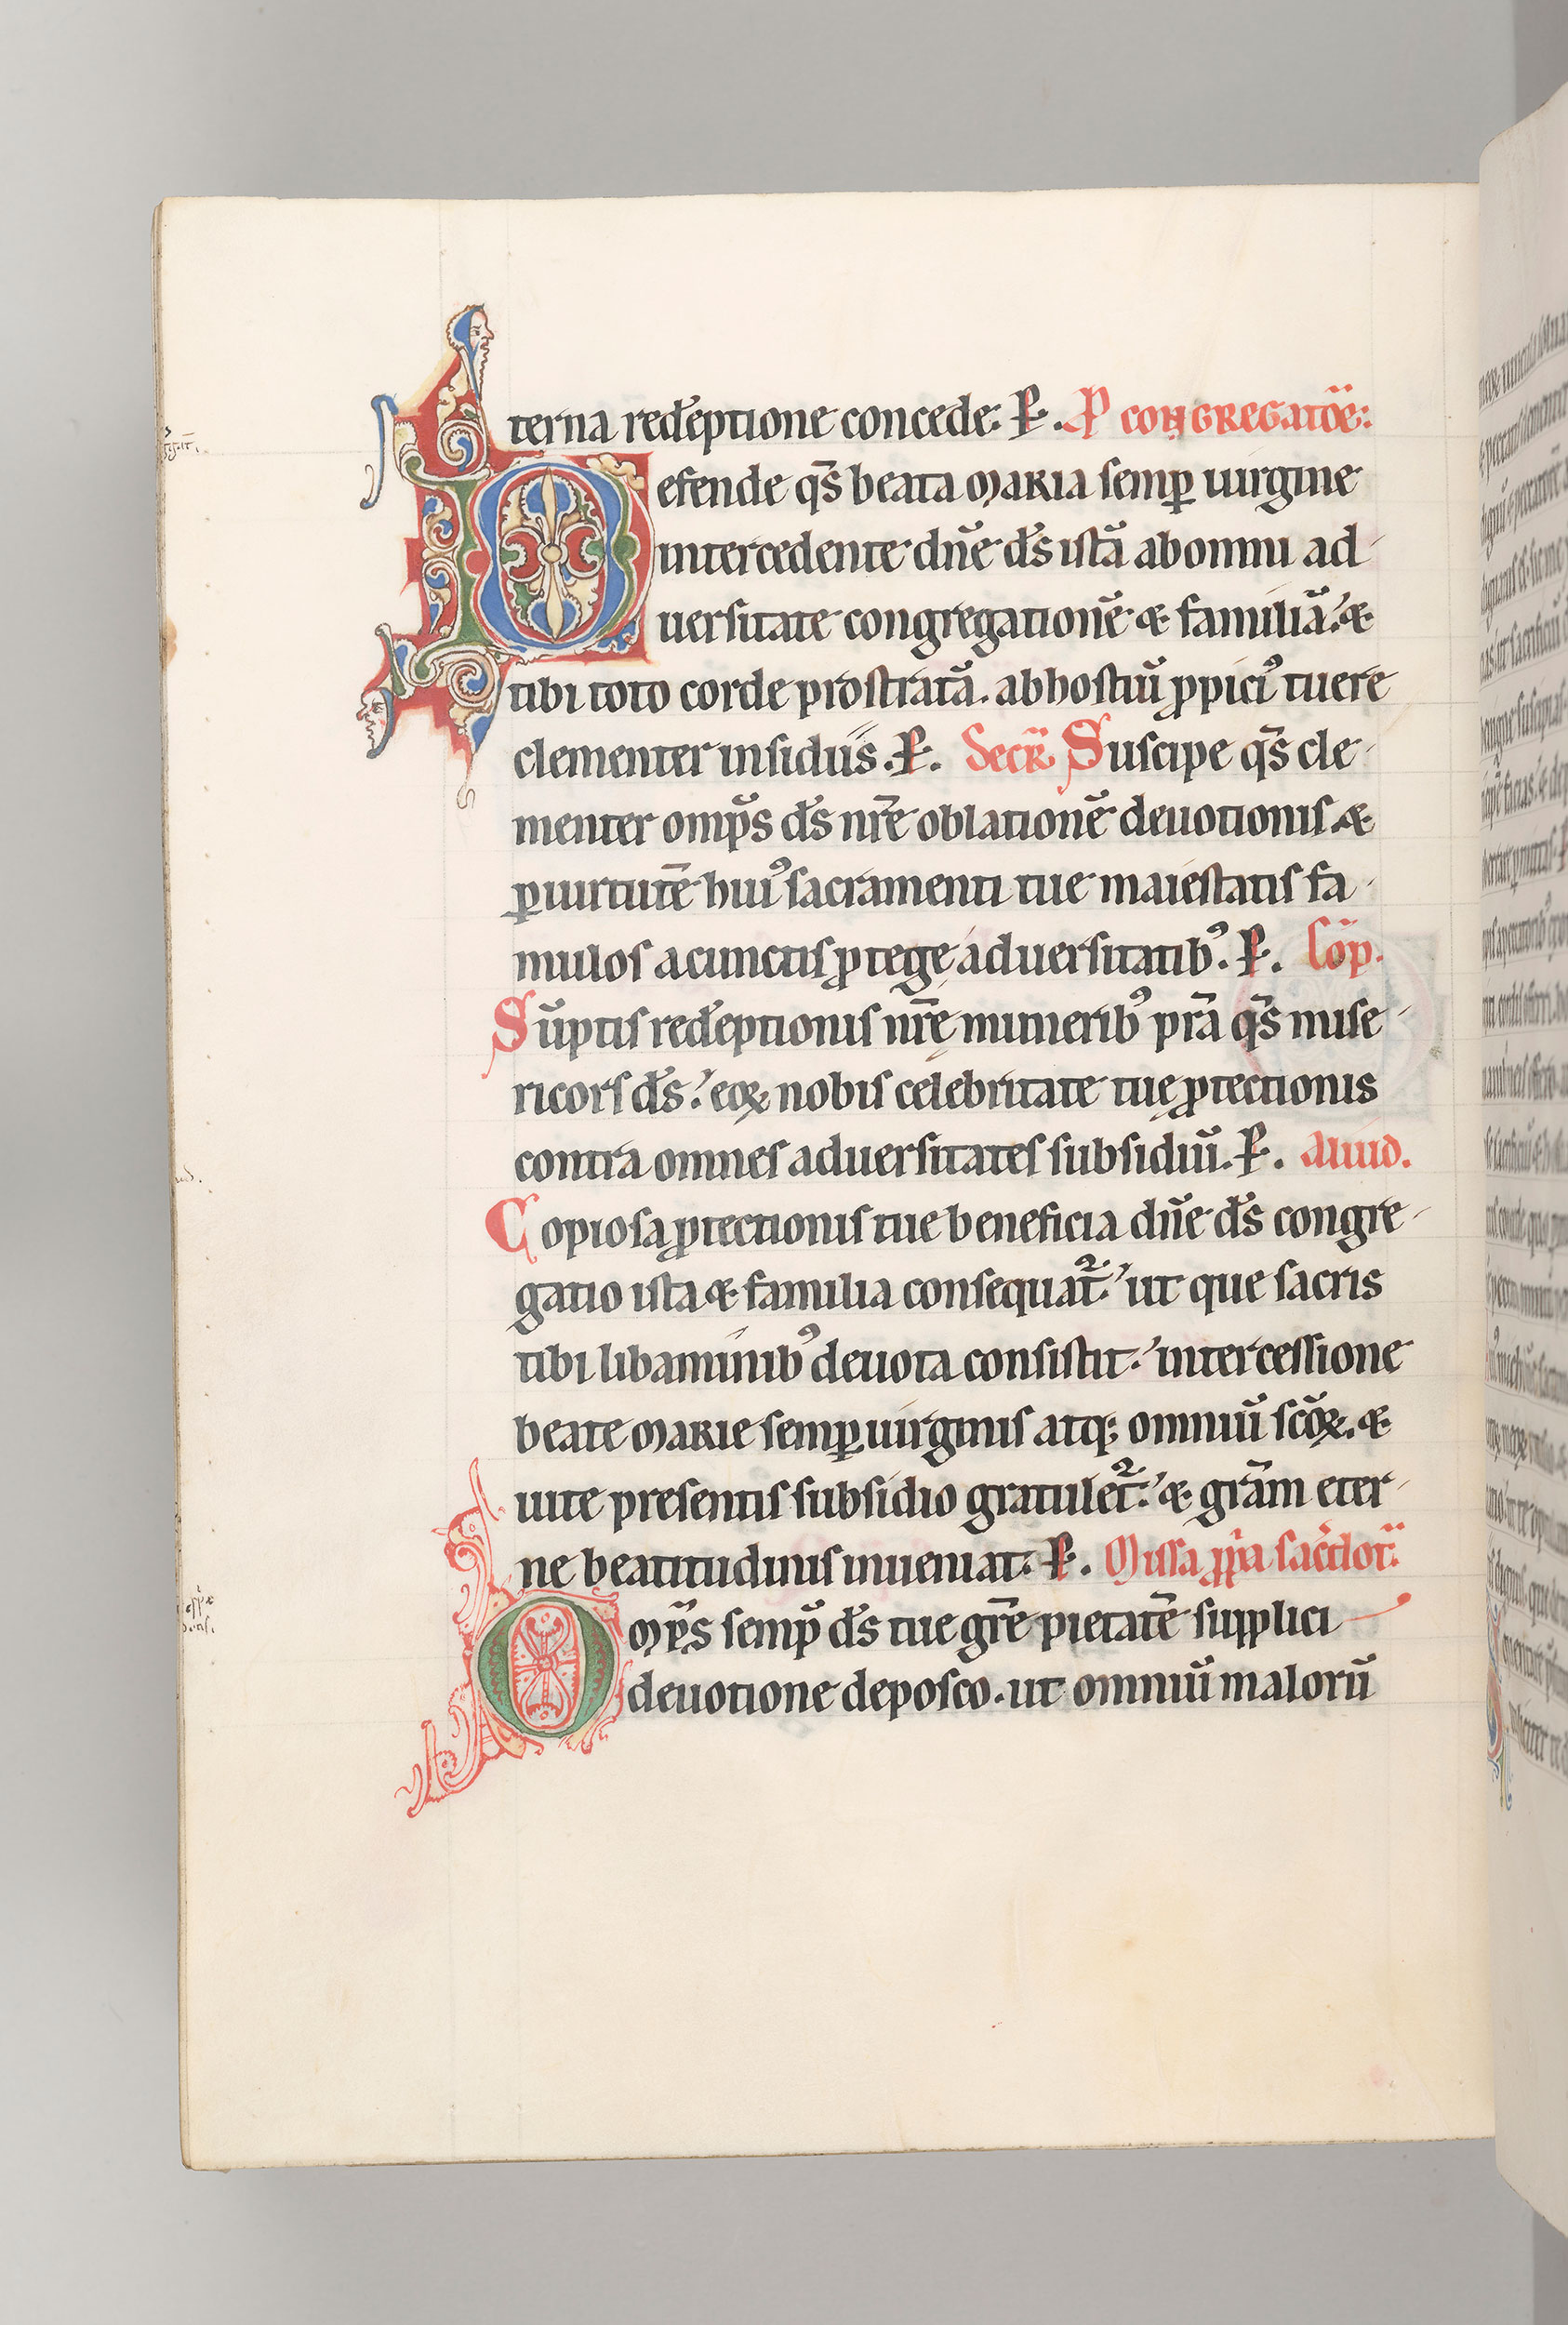 terna rede̅ptione concede. P. P CONGREGATO̅E:
Defende qs̅ beata MARIA semp̲ uirgine
intercedente dn̅e ds̅ ista̅ ab omni ad
uersitate congregatione̅ & familia̅. &
tibi toto corde prostrata̅. ab hostiu̅ ꝓpiciꝰ tuere
clementer insidiis. P. Secr̅ Suscipe qs̅ cle
menter omp̅s ds̅ nr̅e oblatione̅ deuotionis &
ꝑ uirtute̅ huiꝰ sacramenti tue maiestatis fa
mulos a cunctis ꝓtegę aduersitatibꝰ. P. Co̅p.
Su̅ptis rede̅ptionis nr̅ę muneribꝰ pr̅a qs̅ mise
ricors ds̅. eoꝝ nobis celebritate tuę ꝓtectionis
contra omnes aduersitates subsidiu̅. P. Aliud.
Copiosa ꝓtectionis tue beneficia dn̅e ds̅ congre
gatio ista & familia consequat̅. ut que sacris
tibi libaminibꝰ deuota consistit. intercessione
beate MARIE semꝑ uirginis atq; omniu̅ sc̅oꝝ. &
uite presentis subsidio gratulet̅. & gr̅am eter
ne beatitudinis inueniat. P. Missa ꝓp̲a sac̅dot̅.
Omp̅s semp̅ ds̅ tue gr̅e pietate̅ supplici
deuotione deposco. ut omniu̅ maloru̅